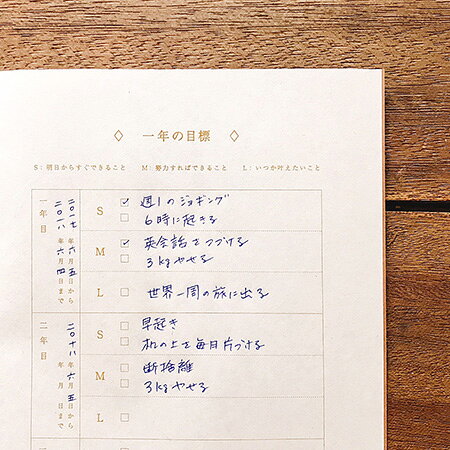 ◇ 一年の目標 ◇
S：明日からすぐできること M：努力すればできること L：いつか叶えたいこと
一年目
二〇一七年六月五日から
二〇一八年六月四日まで
S ✓ 週1のジョギング
6時に起きる
M ✓ 英会話をつづける
3kgやせる
L 世界一周の旅に出る
二年目
二〇一八年六月五日から
年 月 日まで
S 早起き
机の上を毎日片づける
M 断捨離
3kgやせる
L